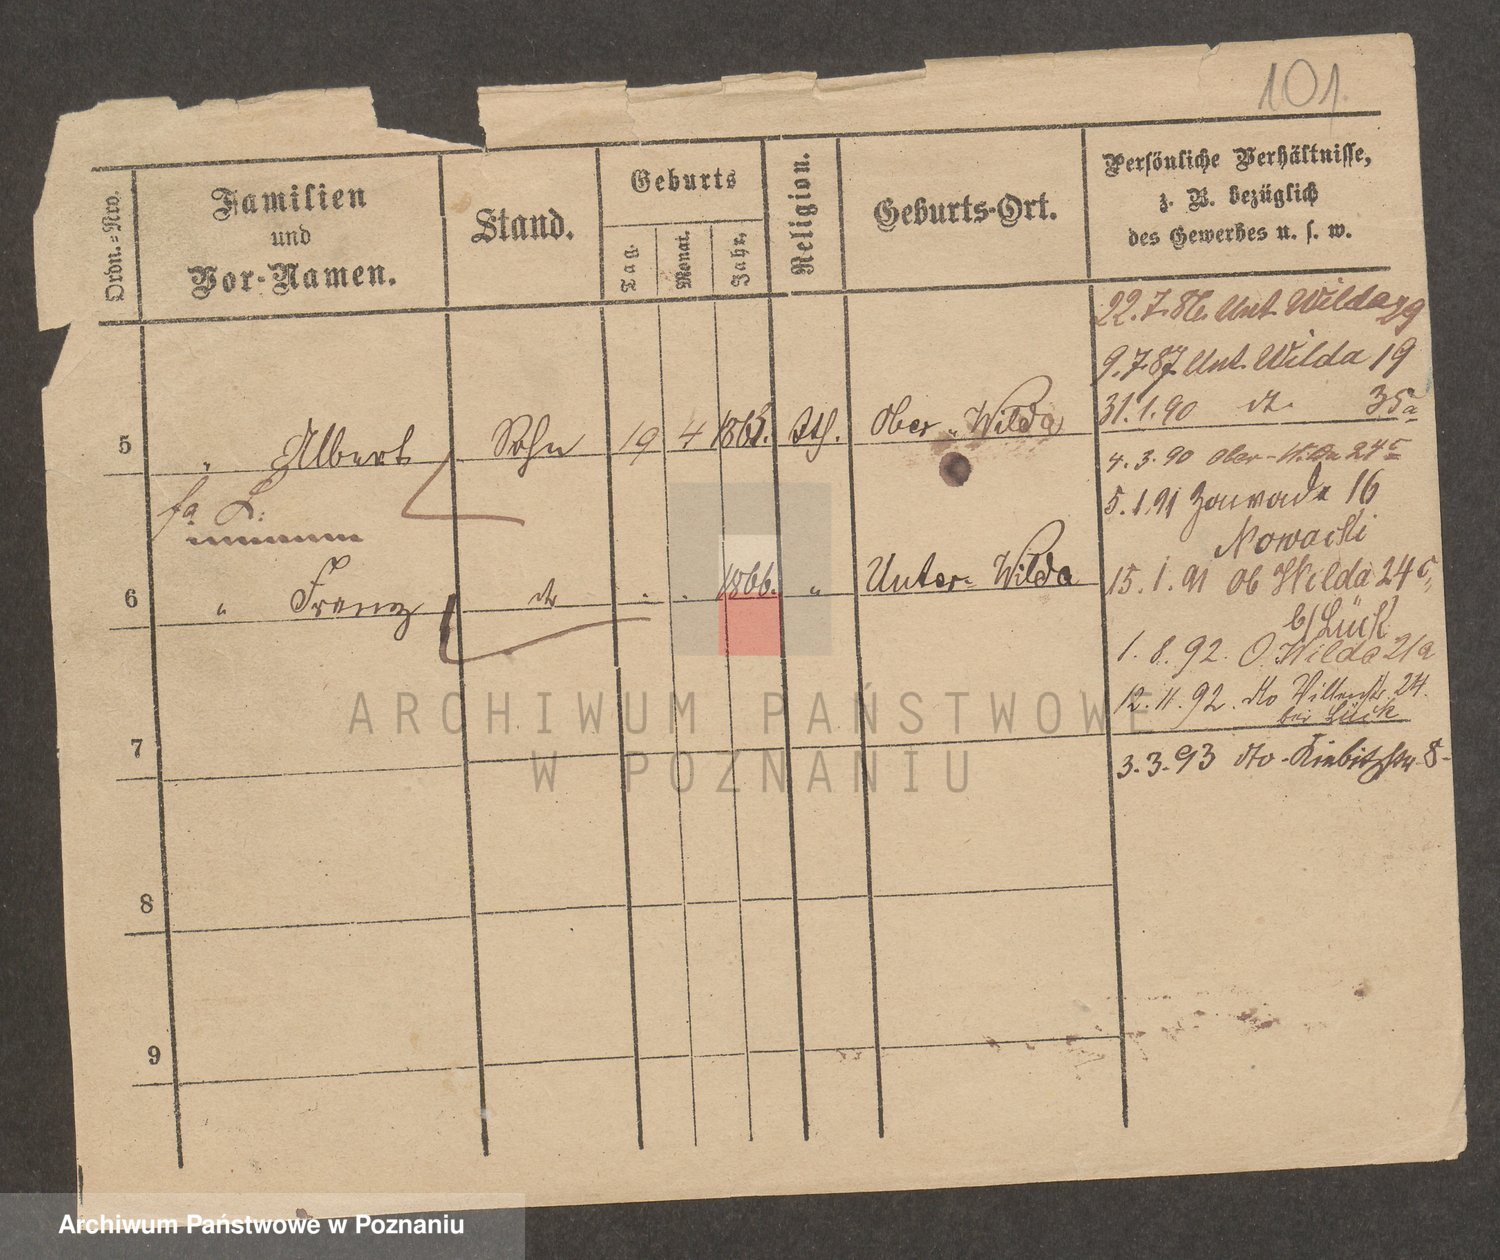 101.
Ordn.=Nro.
Familien
und
Vor-Namen.
Stand.
Geburts
Tag.
Monat.
Jahr.
Religion.
Geburts-Ort.
Persönliche Verhältnisse,
z. B. bezüglich
des Gewerbes u. s. w.
22.7.86. Unt Wilda 29
9.7.87 Unt. Wilda 19
31.1.90 dt. 35a
5 " Albert Sohn 19 4 1863. kth. Ober-Wilda
4.3.90 Ober-Wilda 24c
5.1.91 Zawade 16
Nowacki
6 " Franz dt . . 1866. " Unter-Wilda
15.1.91 Ob Wilda 24c,
b/ Lück
1.8.92. O. Wilda 21a
12.11.92. dto 24.
bei Lück
7
3.3.93 dto - Kiebitzstr 8-
8
9
ARCHIWUM PAŃSTWOWE
W POZNANIU
Archiwum Państwowe w Poznaniu